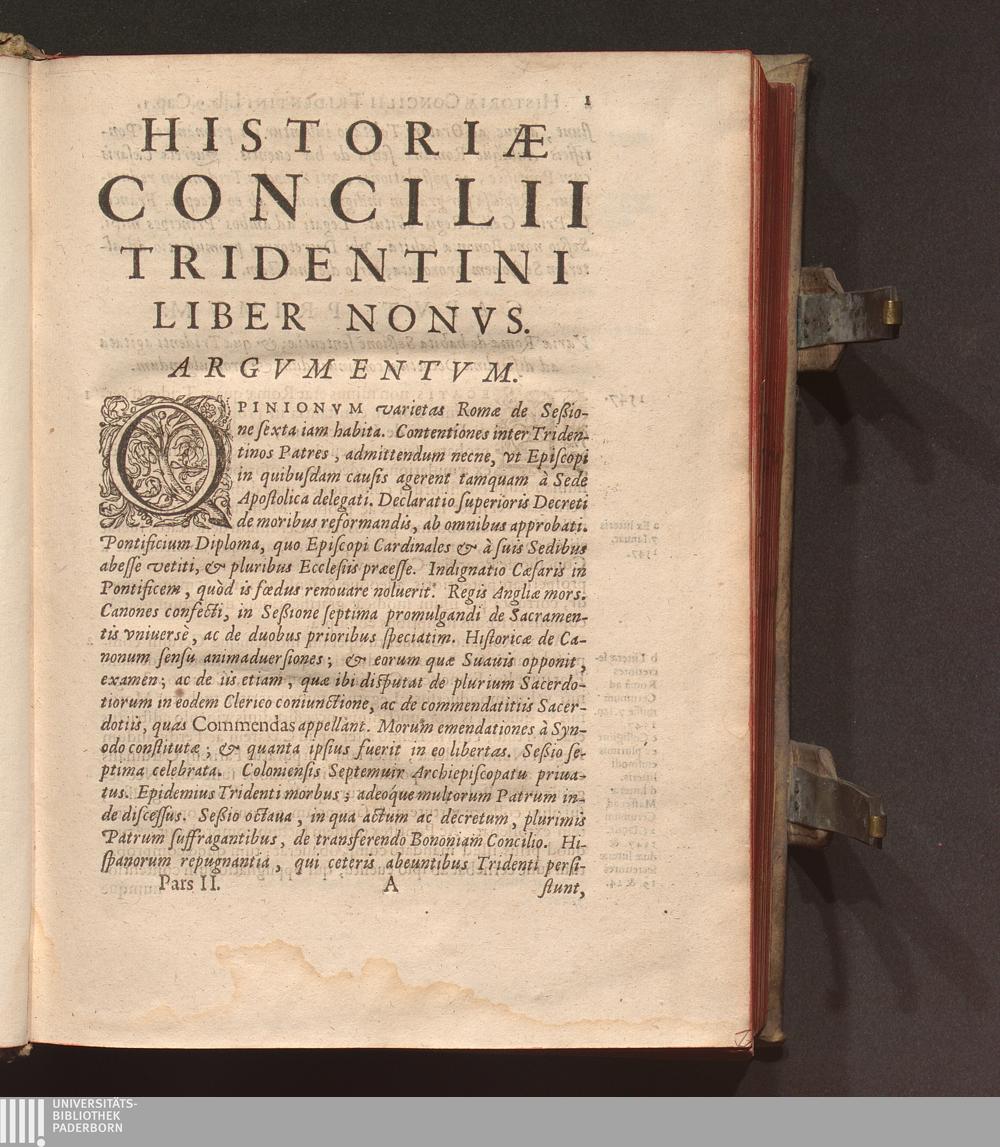 1
HISTORIÆ
CONCILII
TRIDENTINI
LIBER NONVS.
ARGVMENTVM.
OPINIONVM varietas Romæ de Seßio-
ne ſexta iam habita. Contentiones inter Triden-
tinos Patres, admittendum necne, vt Epiſcopi
in quibuſdam cauſis agerent tamquam à Sede
Apoſtolica delegati. Declaratio ſuperioris Decreti
de moribus reformandis, ab omnibus approbati.
Pontificium Diploma, quo Epiſcopi Cardinales & à ſuis Sedibus
abeſſe vetiti, & pluribus Eccleſiis præeſſe. Indignatio Cæſaris in
Pontificem, quòd is fœdus renouare noluerit. Regis Angliæ mors.
Canones confecti, in Seßione ſeptima promulgandi de Sacramen-
tis vniuerse, ac de duobus prioribus ſpeciatim. Hiſtoricæ de Ca-
nonum ſenſu animaduerſiones; & eorum quæ Suauis opponit,
examen; ac de iis etiam, quæ ibi diſputat de plurium Sacerdo-
tiorum in eodem Clerico coniunctione, ac de commendatitiis Sacer-
dotiis, quas Commendas appellant. Morum emendationes à Syn-
odo conſtitutæ; & quanta ipſius fuerit in eo libertas. Seßio ſe-
ptima celebrata. Colonienſis Septemuir Archiepiſcopatu priua-
tus. Epidemius Tridenti morbus; adeoque multorum Patrum in-
de diſceſſus. Seßio octaua, in qua actum ac decretum, plurimis
Patrum ſuffragantibus, de transferendo Bononiam Concilio. Hi-
ſpanorum repugnantia, qui ceteris abeuntibus Tridenti perſi-
Pars II. A ſtunt,
UNIVERSITÄTS-
BIBLIOTHEK
PADERBORN